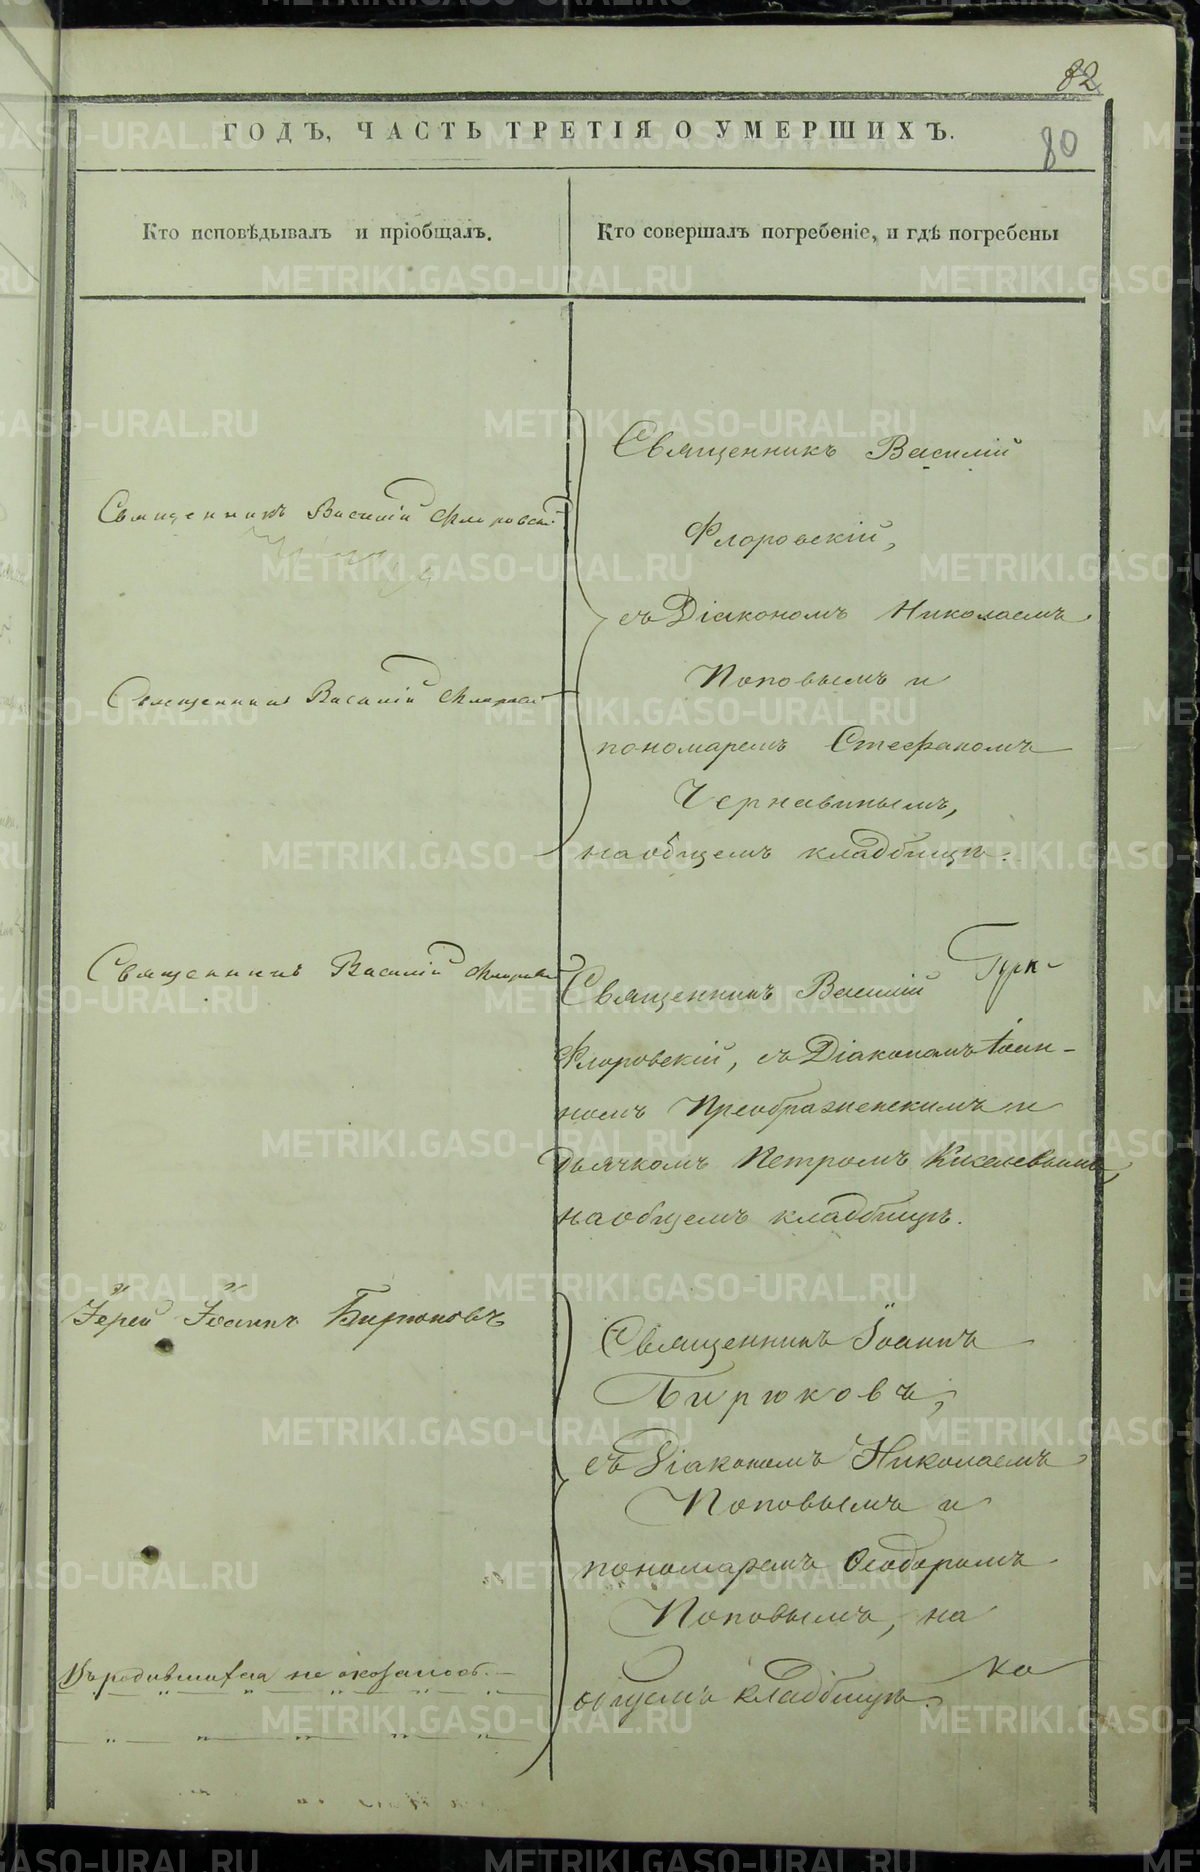 82
ГОДЪ, ЧАСТЬ ТРЕТІЯ О УМЕРШИХЪ.
80
Кто исповѣдывалъ и пріобщалъ.
Кто совершалъ погребеніе, и гдѣ погребены
Священникъ Василій Флоровскій
Священникъ Василій
Флоровскій,
съ Діакономъ Николаемъ
Поповымъ и
пономаремъ Стефаномъ
Чернавинымъ,
на общемъ кладбищѣ.
Священникъ Василій Флоровскій
Священникъ Василій Флоровскій
Священникъ Василій
Флоровскій, съ Діакономъ Іоан-
номъ Преображенскимъ и
дьячкомъ Петромъ Киселевымъ,
на общемъ кладбищѣ.
Іерей Іоаннъ Бирюковъ
Священникъ Іоаннъ
Бирюковъ,
съ Діакономъ Николаемъ
Поповымъ и
пономаремъ Ѳеодоромъ
Поповымъ, на
общемъ кладбищѣ.
не оказалось
METRIKI.GASO-URAL.RU